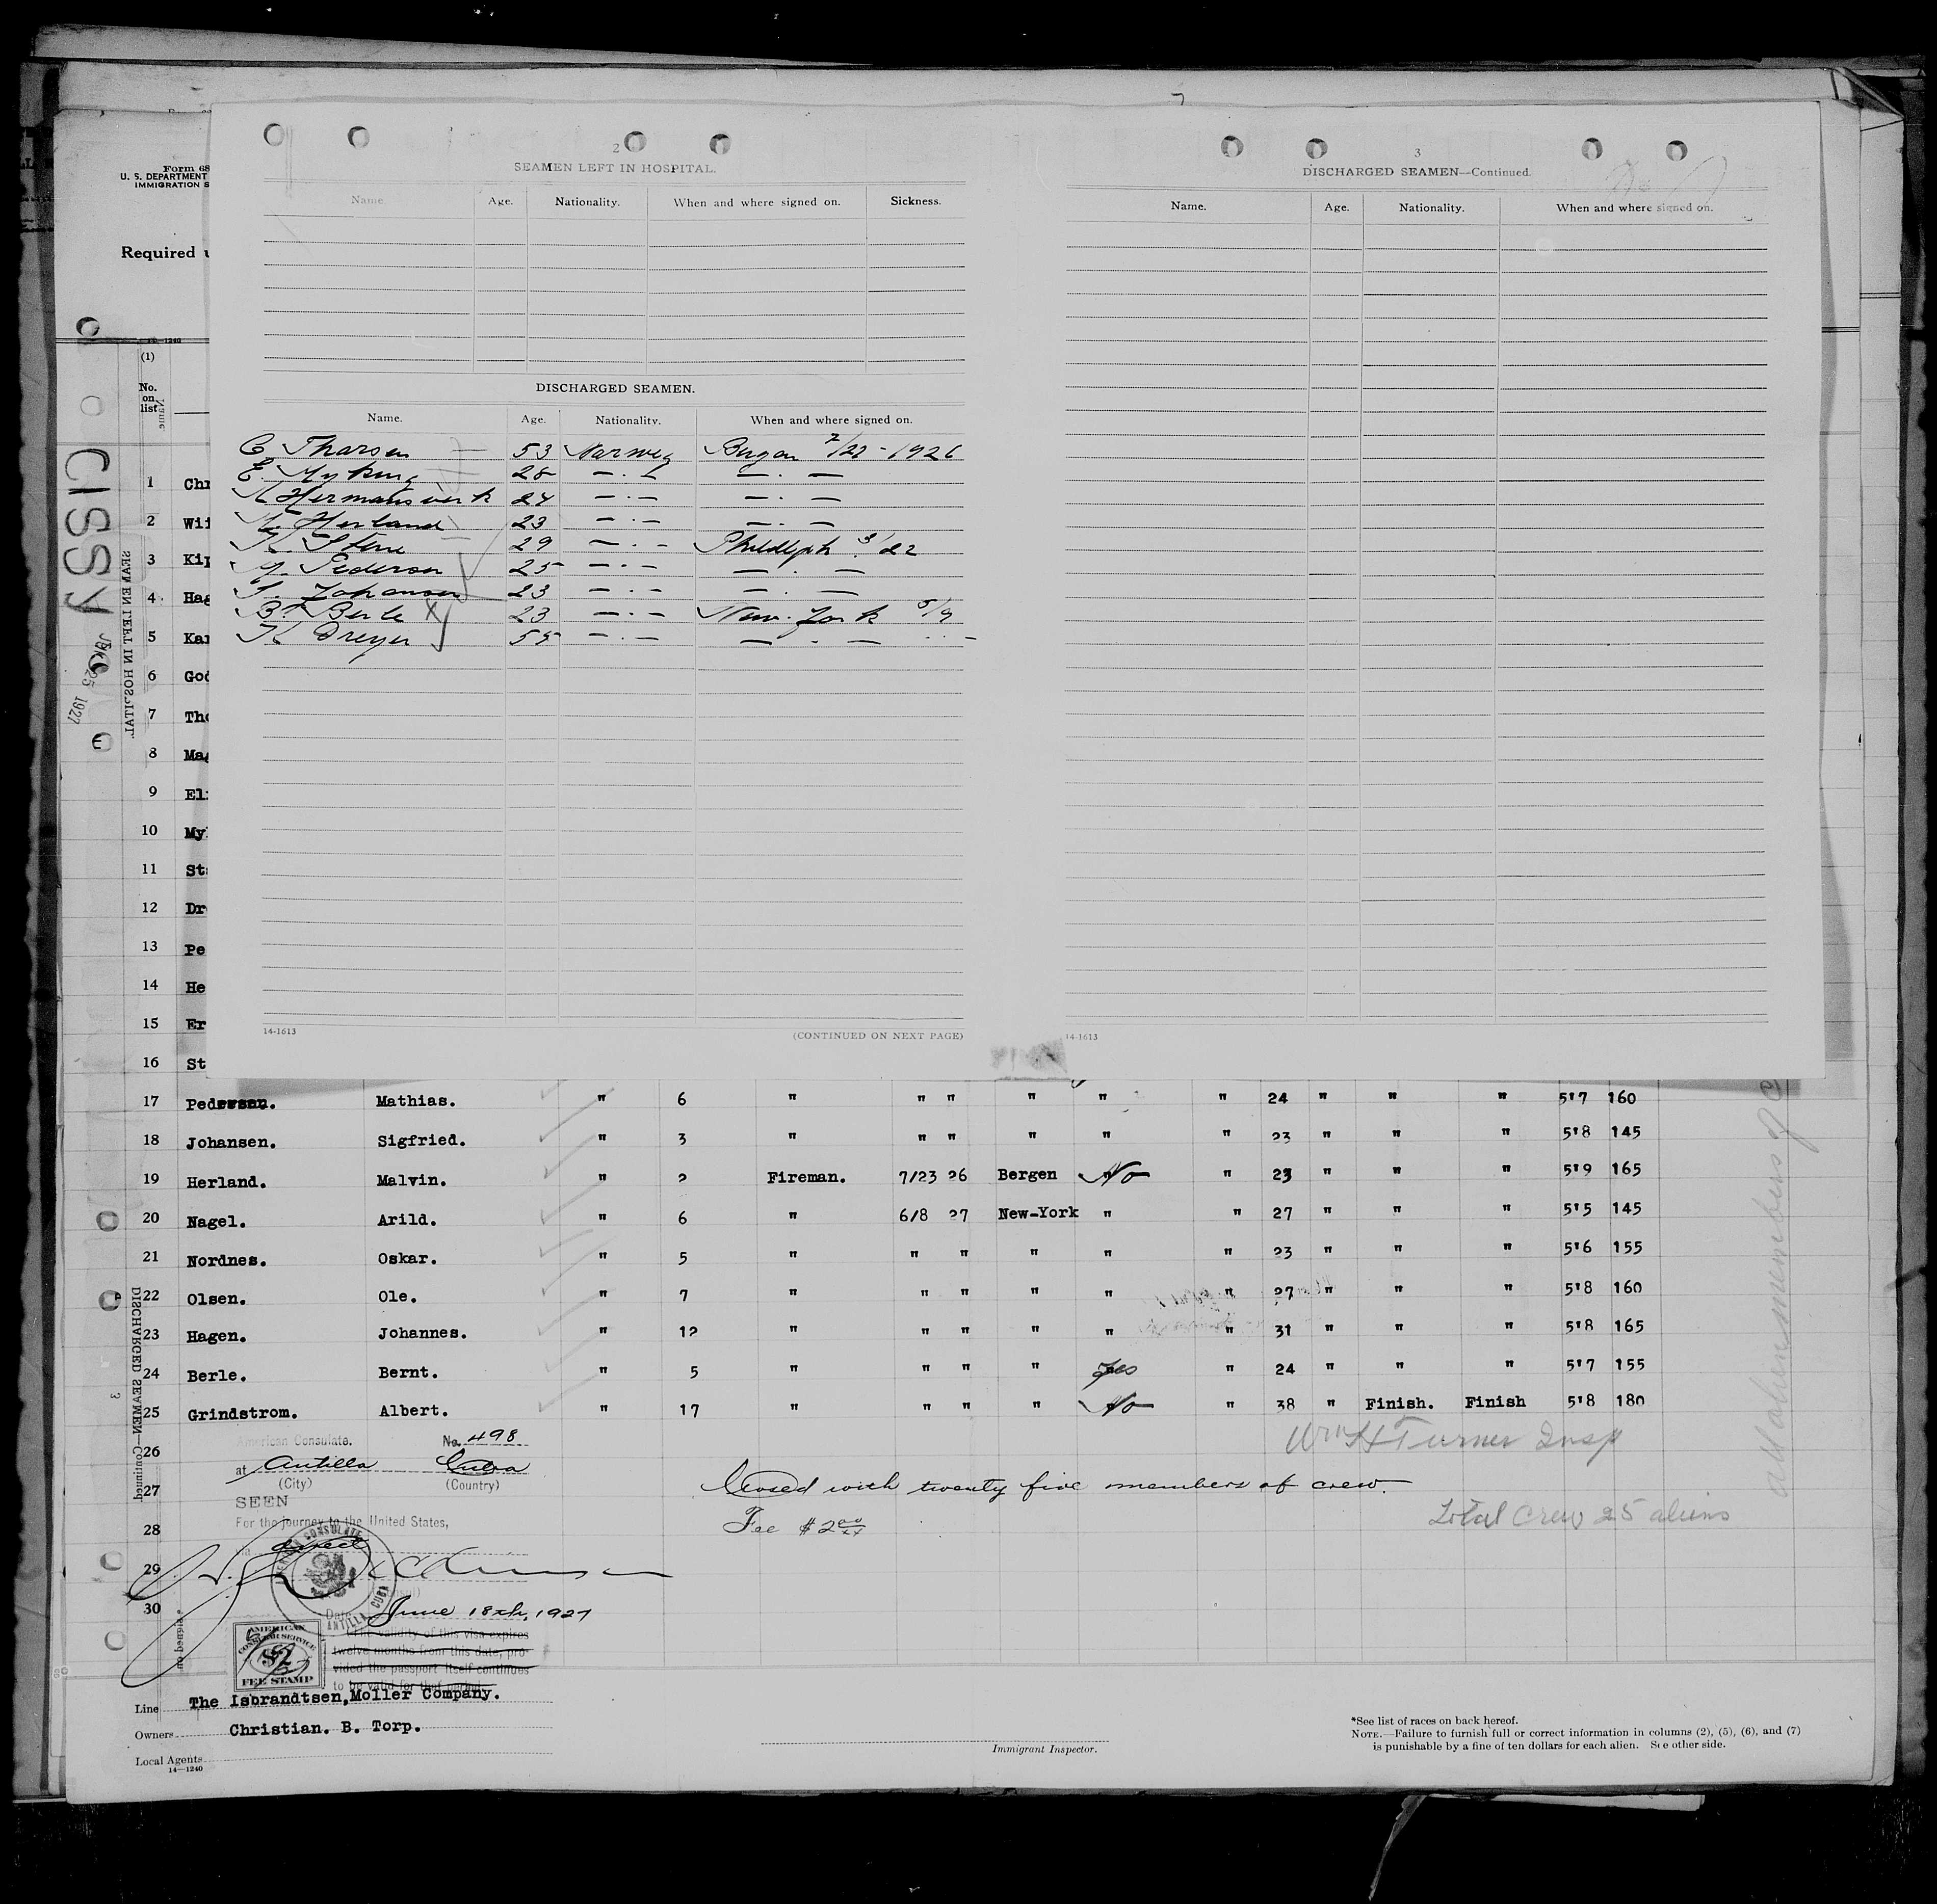 2
SEAMEN LEFT IN HOSPITAL.
Name Age. Nationality. When and where signed on. Sickness.
DISCHARGED SEAMEN.
Name. Age. Nationality. When and where signed on.
C Tharsen 53 Norweg Bergen 7/22 - 1926
E. Myking 28 — . — — . —
K Hermansverk 24 — . — — . —
M. Herland 23 — . — — . —
K. Stene 29 — . — 3/22
M. Pederson 25 — . — — . —
S. Johansen 23 — . — — . —
B. Berle X 23 — . — New. York 5/9
K Dreyer 55 — . — — . —
14-1613 (CONTINUED ON NEXT PAGE)
3
DISCHARGED SEAMEN—Continued.
Name. Age. Nationality. When and where signed on.
14-1613
Form 68
U. S. DEPARTMENT
IMMIGRATION S
Required u
14-1240
(1)
No. on list
CISSY
25 1927
SEAMEN LEFT IN HOSPITAL
1 Chr
2 Wil
3 Kip
4 Hag
5 Kar
6 God
7 Tho
8 Mag
9 Eli
10 Myl
11 Sta
12 Dr
13 Pe
14 He
15 Er
16 St
17 Pedersen. Mathias. " 6 " " " " " " 24 " " " 5'7 160
18 Johansen. Sigfried. " 3 " " " " " " 23 " " " 5'8 145
19 Herland. Malvin. " 2 Fireman. 7/23 26 Bergen No " 23 " " " 5'9 165
20 Nagel. Arild. " 6 " 6/8 27 New-York " " 27 " " " 5'5 145
21 Nordnes. Oskar. " 5 " " " " " " 23 " " " 5'6 155
22 Olsen. Ole. " 7 " " " " " " 27 " " " 5'8 160
23 Hagen. Johannes. " 12 " " " " " " 31 " " " 5'8 165
24 Berle. Bernt. " 5 " " " " Yes " 24 " " " 5'7 155
25 Grindstrom. Albert. " 17 " " " " No " 38 " Finish. Finish 5'8 180
26
27
28
29
30
DISCHARGED SEAMEN—Continued
3
all alien members of
Wm H Turner Insp
American Consulate. No. 498
at Antilla Cuba
(City) (Country)
SEEN
For the journey to the United States,
via direct
AMERICAN CONSULATE ANTILLA, CUBA
Date June 18th, 1927
The validity of this visa expires
twelve months from this date, pro-
vided the passport itself continues
to be valid for that period.
AMERICAN CONSULAR SERVICE $2 FEE STAMP
Closed with twenty five members of crew.
Fee $2 00/xx
Total Crew 25 aliens
Line The Isbrandtsen,Moller Company.
Owners Christian. B. Torp.
Local Agents
14—1240
Immigrant Inspector.
*See list of races on back hereof.
NOTE.—Failure to furnish full or correct information in columns (2), (5), (6), and (7)
is punishable by a fine of ten dollars for each alien. See other side.